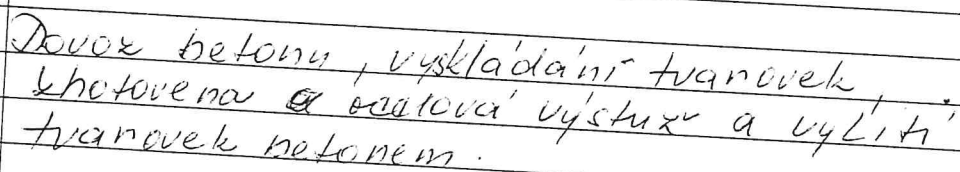 Dovoz betonu, vyskládání tvarovek,
zhotovena ocelová výstuž a vylití
tvarovek betonem.